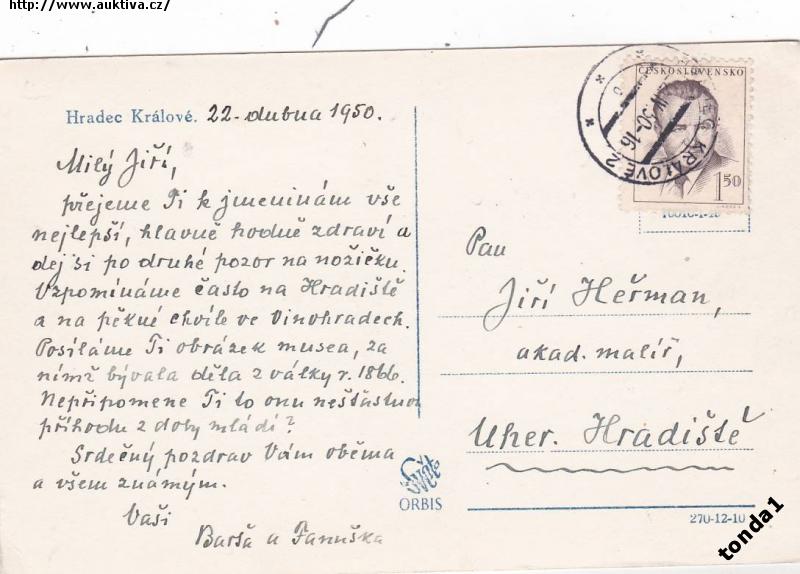 http://www.auktiva.cz/
Hradec Králové. 22. dubna 1950.
Milý Jiří,
přejeme Ti k jmeninám vše
nejlepší, hlavně hodně zdraví a
dej si po druhé pozor na nožičku.
Vzpomínáme často na Hradiště
a na pěkné chvíle ve Vinohradech.
Posíláme Ti obrázek musea, za
nímž bývala děla z války r. 1866.
Nepřipomene Ti to onu nešťastnou
příhodu z doby mládí?
Srdečný pozdrav Vám oběma
a všem známým.
Vaši
Barša a Fanuška
ČESKOSLOVENSKO
KRÁLOVÉ 2
50-16
1 50
Pan
Jiří Heřman,
akad. malíř,
Uher. Hradiště
Svět
ORBIS
270-12-10
tonda1